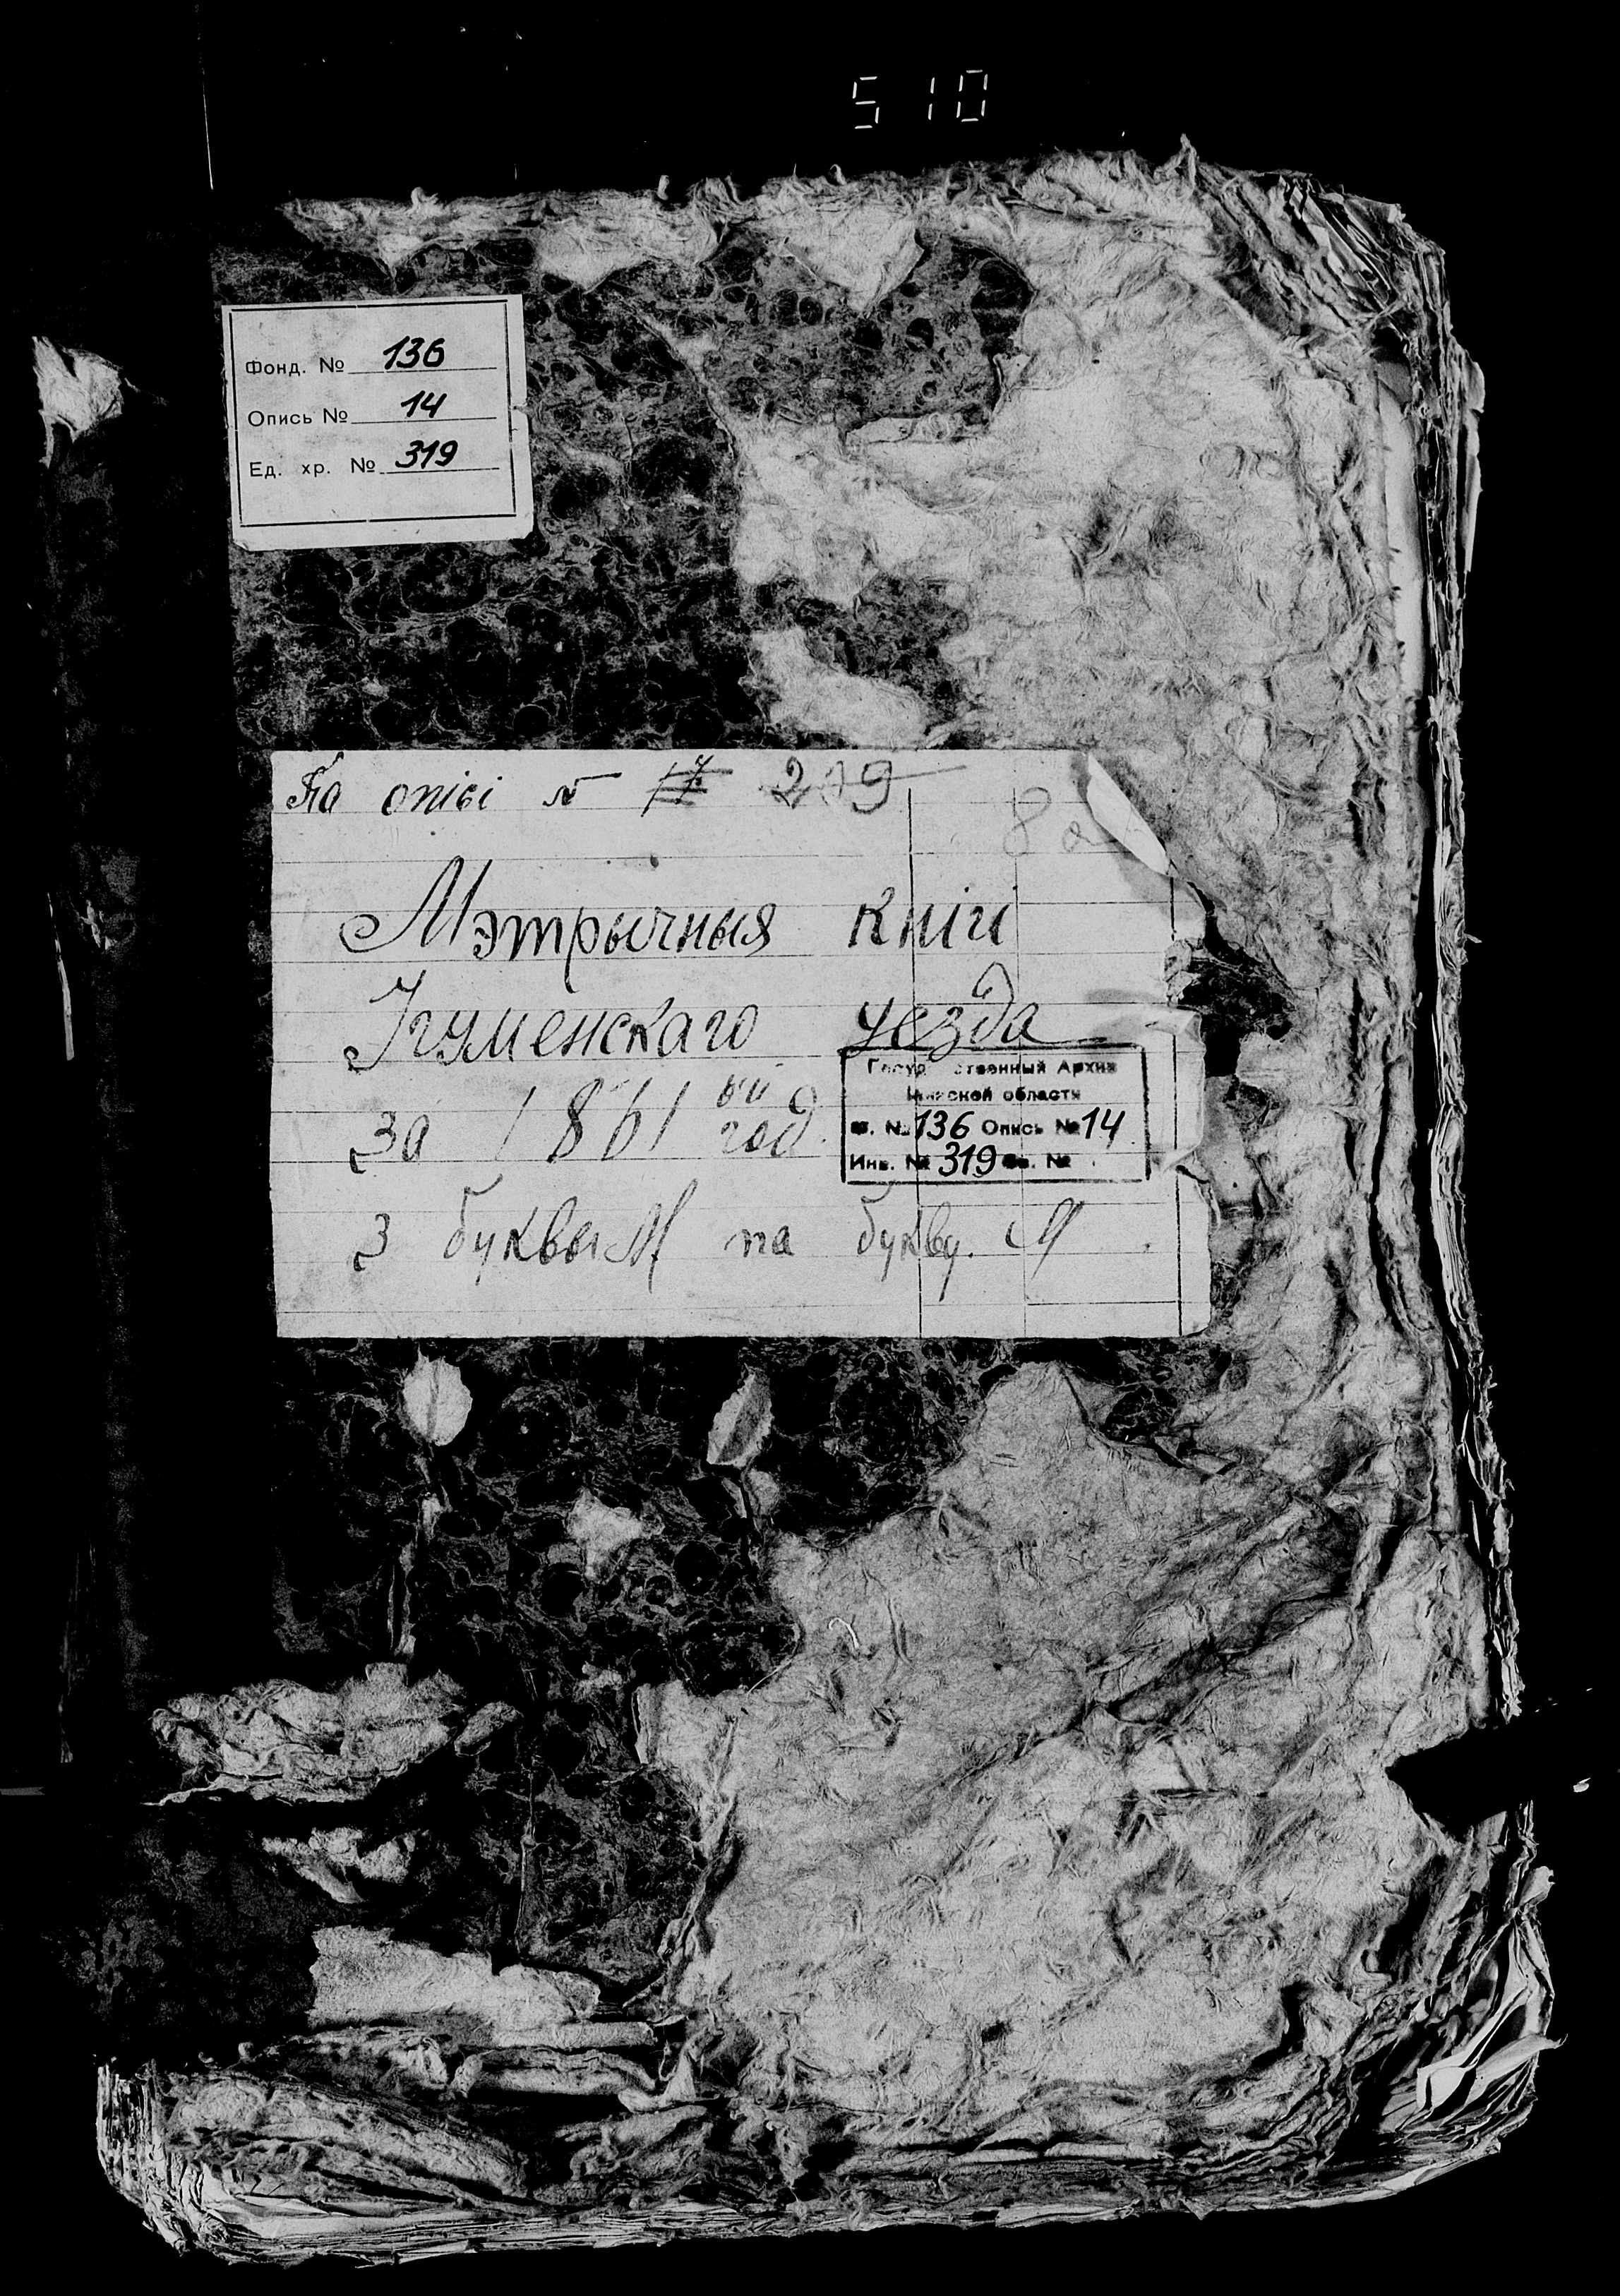 510
Фонд. № 136
Опись № 14
Ед. хр. № 319
Па опісі № 17 209
82
Мэтрычныя кнігі
Ігуменскаго уезда
за 1861 ый год.
З буквы М па букву. М
Государственный Архив
Минской области
Ф. № 136 Опись № 14
Инв. № 319 Св. №